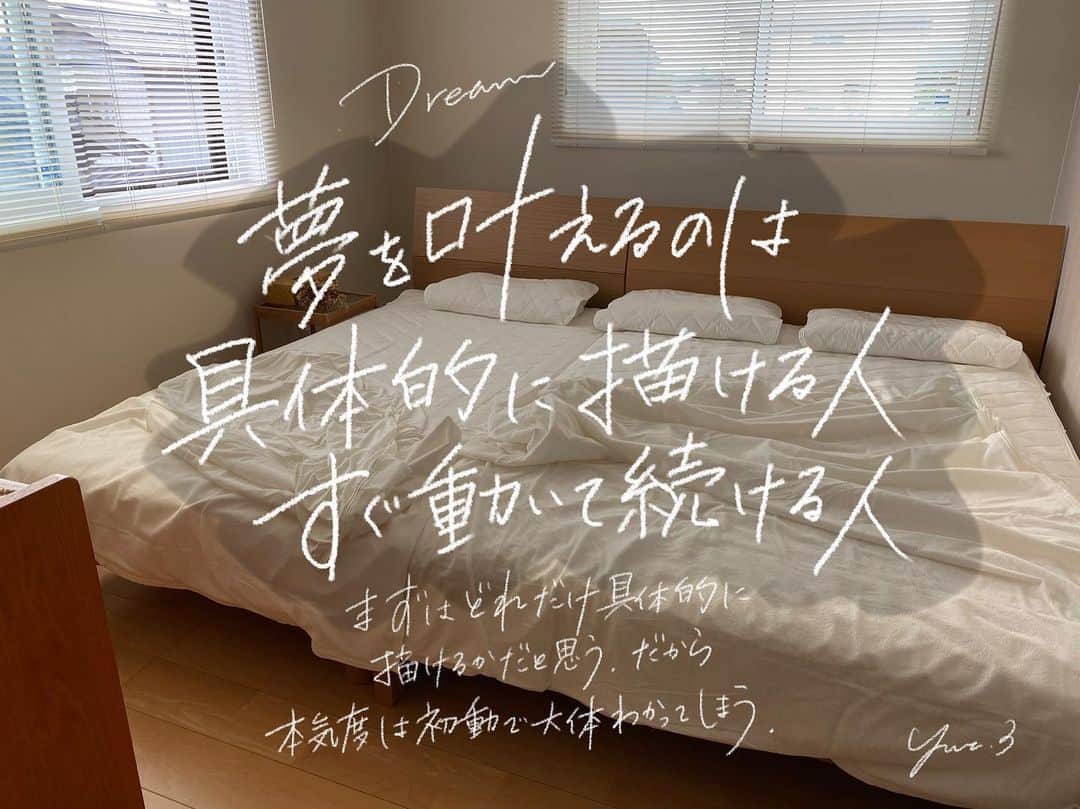 Dream
夢を叶えるのは
具体的に描ける人
すぐ動いて続ける人
まずはどれだけ具体的に
描けるかだと思う.だから
本気度は初動で大体わかってしまう.